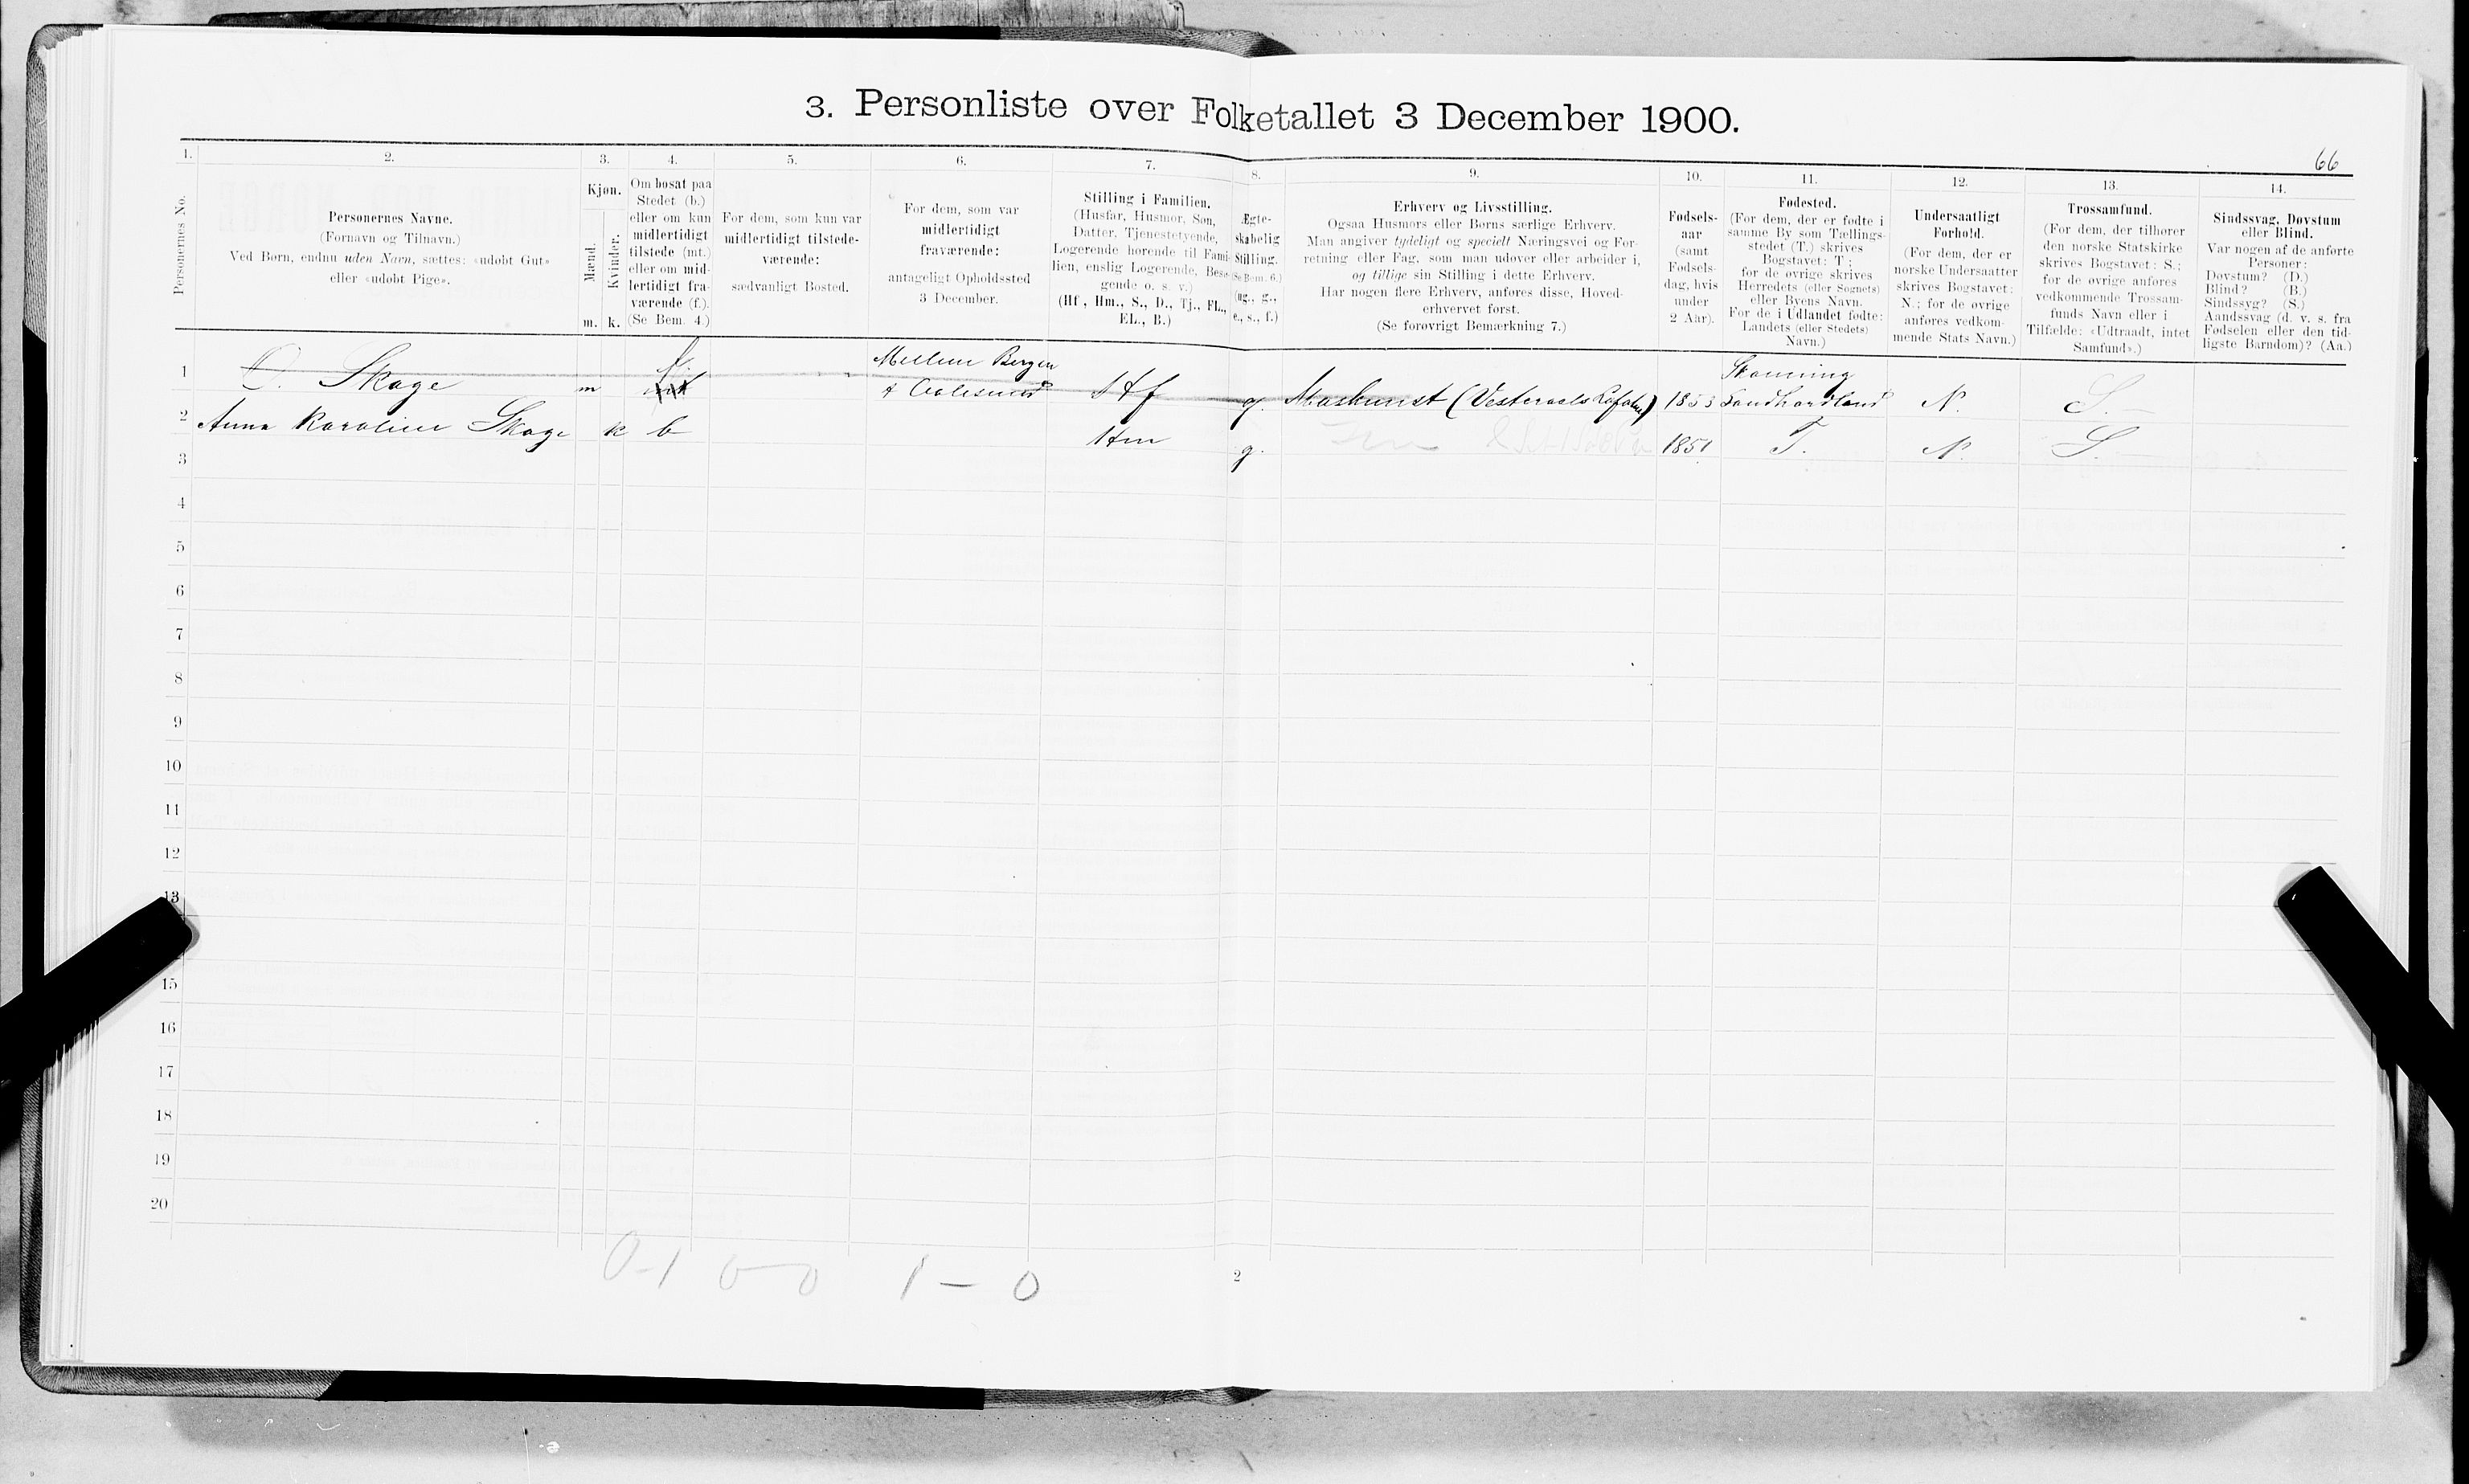 3. Personliste over Folketallet 3 December 1900.
66
1.
2.
3.
4.
5.
6.
7.
8.
9.
10.
11.
12.
13.
14.
Personernes No.
Personernes Navne.
(Fornavn og Tilnavn.)
Ved Børn, endnu uden Navn, sættes: «udøbt Gut»
eller «udøbt Pige».
Kjøn.
Mænd.
Kvinder.
m. k.
Om bosat paa
Stedet (b.)
eller om kun
midlertidigt
tilstede (mt.)
eller om mid-
lertidigt fra-
værende (f.).
(Se Bem. 4.)
For dem, som kun var
midlertidigt tilstede-
værende:
sædvanligt Bosted.
For dem, som var
midlertidigt
fraværende:
antageligt Opholdssted
3 December.
Stilling i Familien.
(Husfar, Husmor, Søn,
Datter, Tjenestetyende,
Logerende hørende til Fami-
lien, enslig Logerende, Besø-
gende o. s. v.)
(Hf., Hm., S., D., Tj., FL.,
EL., B.)
Ægte-
skabelig
Stilling.
(Se Bem. 6.)
(ug., g.,
e., s., f.)
Erhverv og Livsstilling.
Ogsaa Husmors eller Børns særlige Erhverv.
Man angiver tydeligt og specielt Næringsvei og For-
retning eller Fag, som man udøver eller arbeider i,
og tillige sin Stilling i dette Erhverv.
Har nogen flere Erhverv, anføres disse, Hoved-
erhvervet først.
(Se forøvrigt Bemærkning 7.)
Fødsels-
aar
(samt
Fødsels-
dag, hvis
under
2 Aar).
Fødested.
(For dem, der er fødte i
samme By som Tællings-
stedet (T.) skrives
Bogstavet: T ;
for de øvrige skrives
Herredets (eller Sognets)
eller Byens Navn.
For de i Udlandet fødte:
Landets (eller Stedets)
Navn.)
Undersaatligt
Forhold.
(For dem, der er
norske Undersaatter
skrives Bogstavet:
N.; for de øvrige
anføres vedkom-
mende Stats Navn.)
Trossamfund.
(For dem, der tilhører
den norske Statskirke
skrives Bogstavet: S.;
for de øvrige anføres
vedkommende Trossam-
funds Navn eller i
Tilfælde: «Udtraadt, intet
Samfund».)
Sindssvag, Døvstum
eller Blind.
Var nogen af de anførte
Personer:
Døvstum? (D.)
Blind? (B.)
Sindssyg? (S.)
Aandssvag (d. v. s. fra
Fødselen eller den tid-
ligste Barndom)? (Aa.)
1 O. Skage m f. Mellem Bergen
& Aalesund Hf g. Maskinist (Vesteraals 1853 Søndhordland N. S.
2 Anna Karoline Skage k b Hm g. 1851 T. N. S.
3
4
5
6
7
8
9
10
11
12
13
15
16
17
18
19
20
0-1 0-0 1-0
2